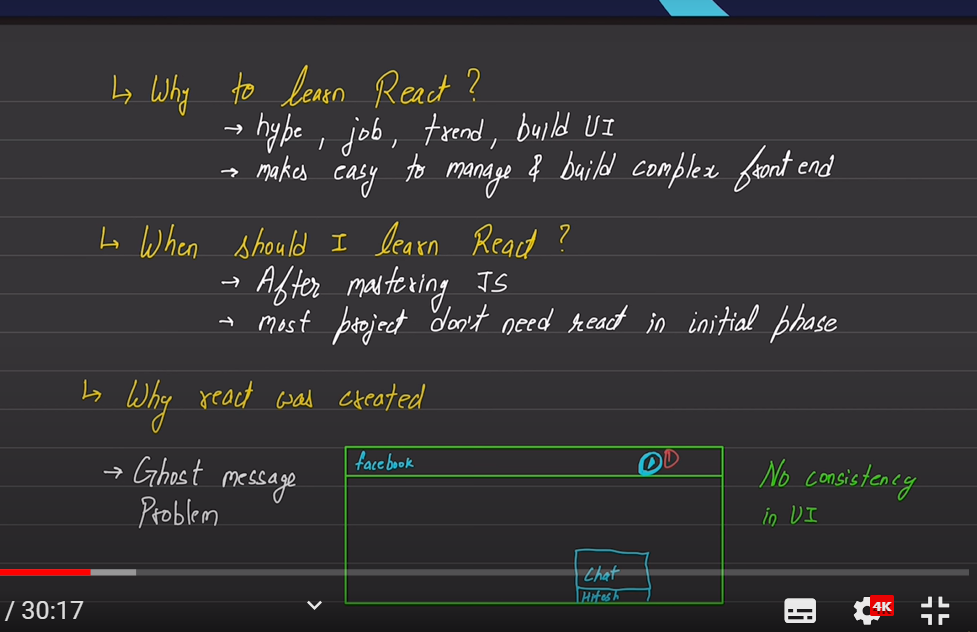 ↳ Why to learn React ?
→ hype, job, trend, build UI
→ makes easy to manage & build complex front end
↳ When should I learn React ?
→ After mastering JS
→ most project don't need react in initial phase
↳ Why react was created
→ Ghost message
Problem
facebook
1
No consistency
in UI
Chat
Hitesh
/ 30:17
4K